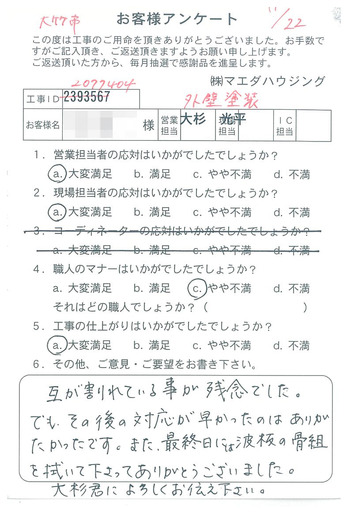 大竹市
11/22
お客様アンケート
この度は工事のご用命を頂きありがとうございました。お手数で
すがご記入頂き、ご返送頂きますようお願い申し上げます。
ご返送頂いた方から、毎月抽選で感謝品を進呈します。
㈱マエダハウジング
2077404
工事ID 2393567
外壁塗装
お客様名 様 営業担当 大杉 担当 光平 IC担当
1．営業担当者の応対はいかがでしたでしょうか？
a. 大変満足 b. 満足 c. やや不満 d. 不満
2．現場担当者の応対はいかがでしたでしょうか？
a. 大変満足 b. 満足 c. やや不満 d. 不満
3．コーディネーターの応対はいかがでしたでしょうか？
a. 大変満足 b. 満足 c. やや不満 d. 不満
4．職人のマナーはいかがでしたでしょうか？
a. 大変満足 b. 満足 c. やや不満 d. 不満
それはどの職人でしょうか？（ ）
5．工事の仕上がりはいかがでしたでしょうか？
a. 大変満足 b. 満足 c. やや不満 d. 不満
6．その他、ご意見・ご要望をお書き下さい。
瓦が割れている事が残念でした。
でも、その後の対応が早かったのはありが
たかったです。また、最終日には波板の骨組
を拭いて下さってありがとうございました。
大杉君によろしくお伝え下さい。